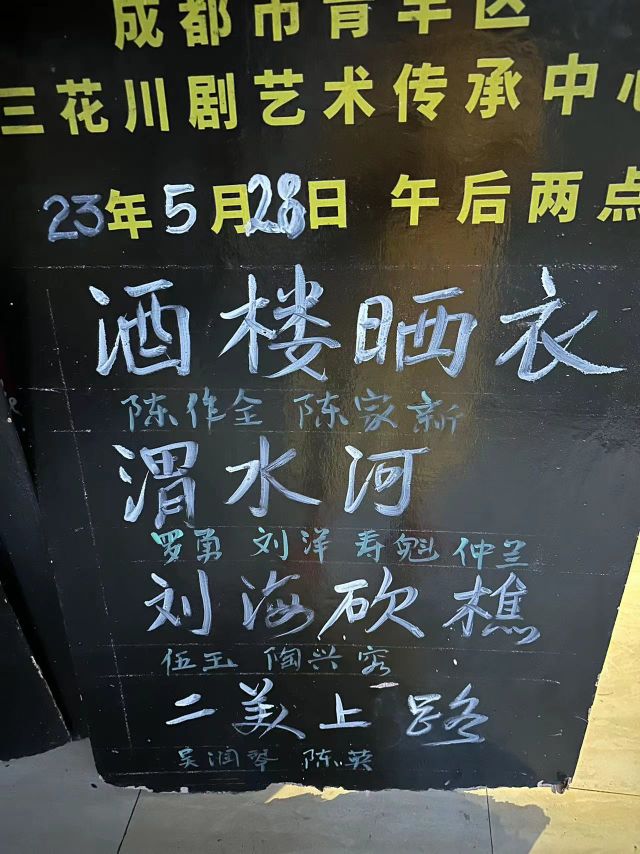 成都市青羊区
三花川剧艺术传承中心
23年5月28日 午后两点
酒楼晒衣
陈作全 陈家新
渭水河
罗勇 刘洋 寿魁 仲兰
刘海砍樵
伍玉 陶兴容
二美上路
吴润琴 陈英